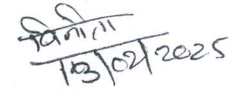 विनीता
13/02/2025